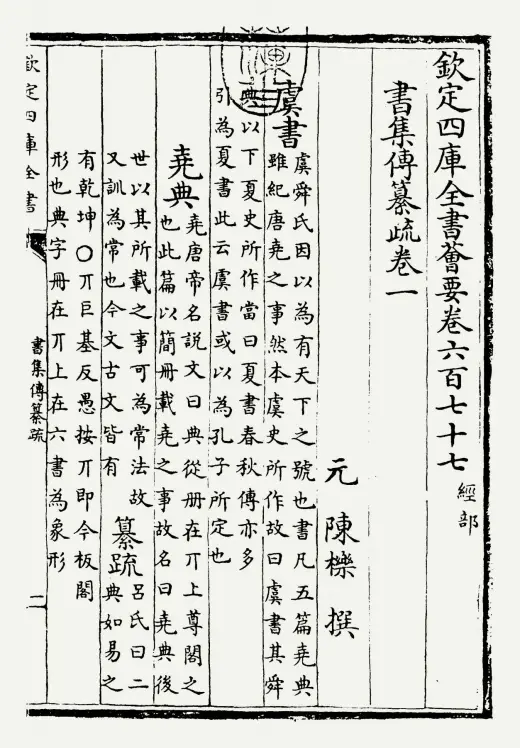 欽定四庫全書薈要卷六百七十七 經部
書集傳纂疏卷一
元 陳櫟 撰
虞書
虞舜氏因以為有天下之號也書凡五篇堯典
雖紀唐堯之事然本虞史所作故曰虞書其舜
典以下夏史所作當曰夏書春秋傳亦多
引為夏書此云虞書或以為孔子所定也
堯典
堯唐帝名說文曰典從册在丌上尊閣之
也此篇以簡冊載堯之事故名曰堯典後
世以其所載之事可為常法故
又訓為常也今文古文皆有
纂疏
呂氏曰二
典如易之
有乾坤○丌巨基反愚按丌即今板閣
形也典字冊在丌上在六書為象形
欽定四庫全書
書集傳纂疏
二